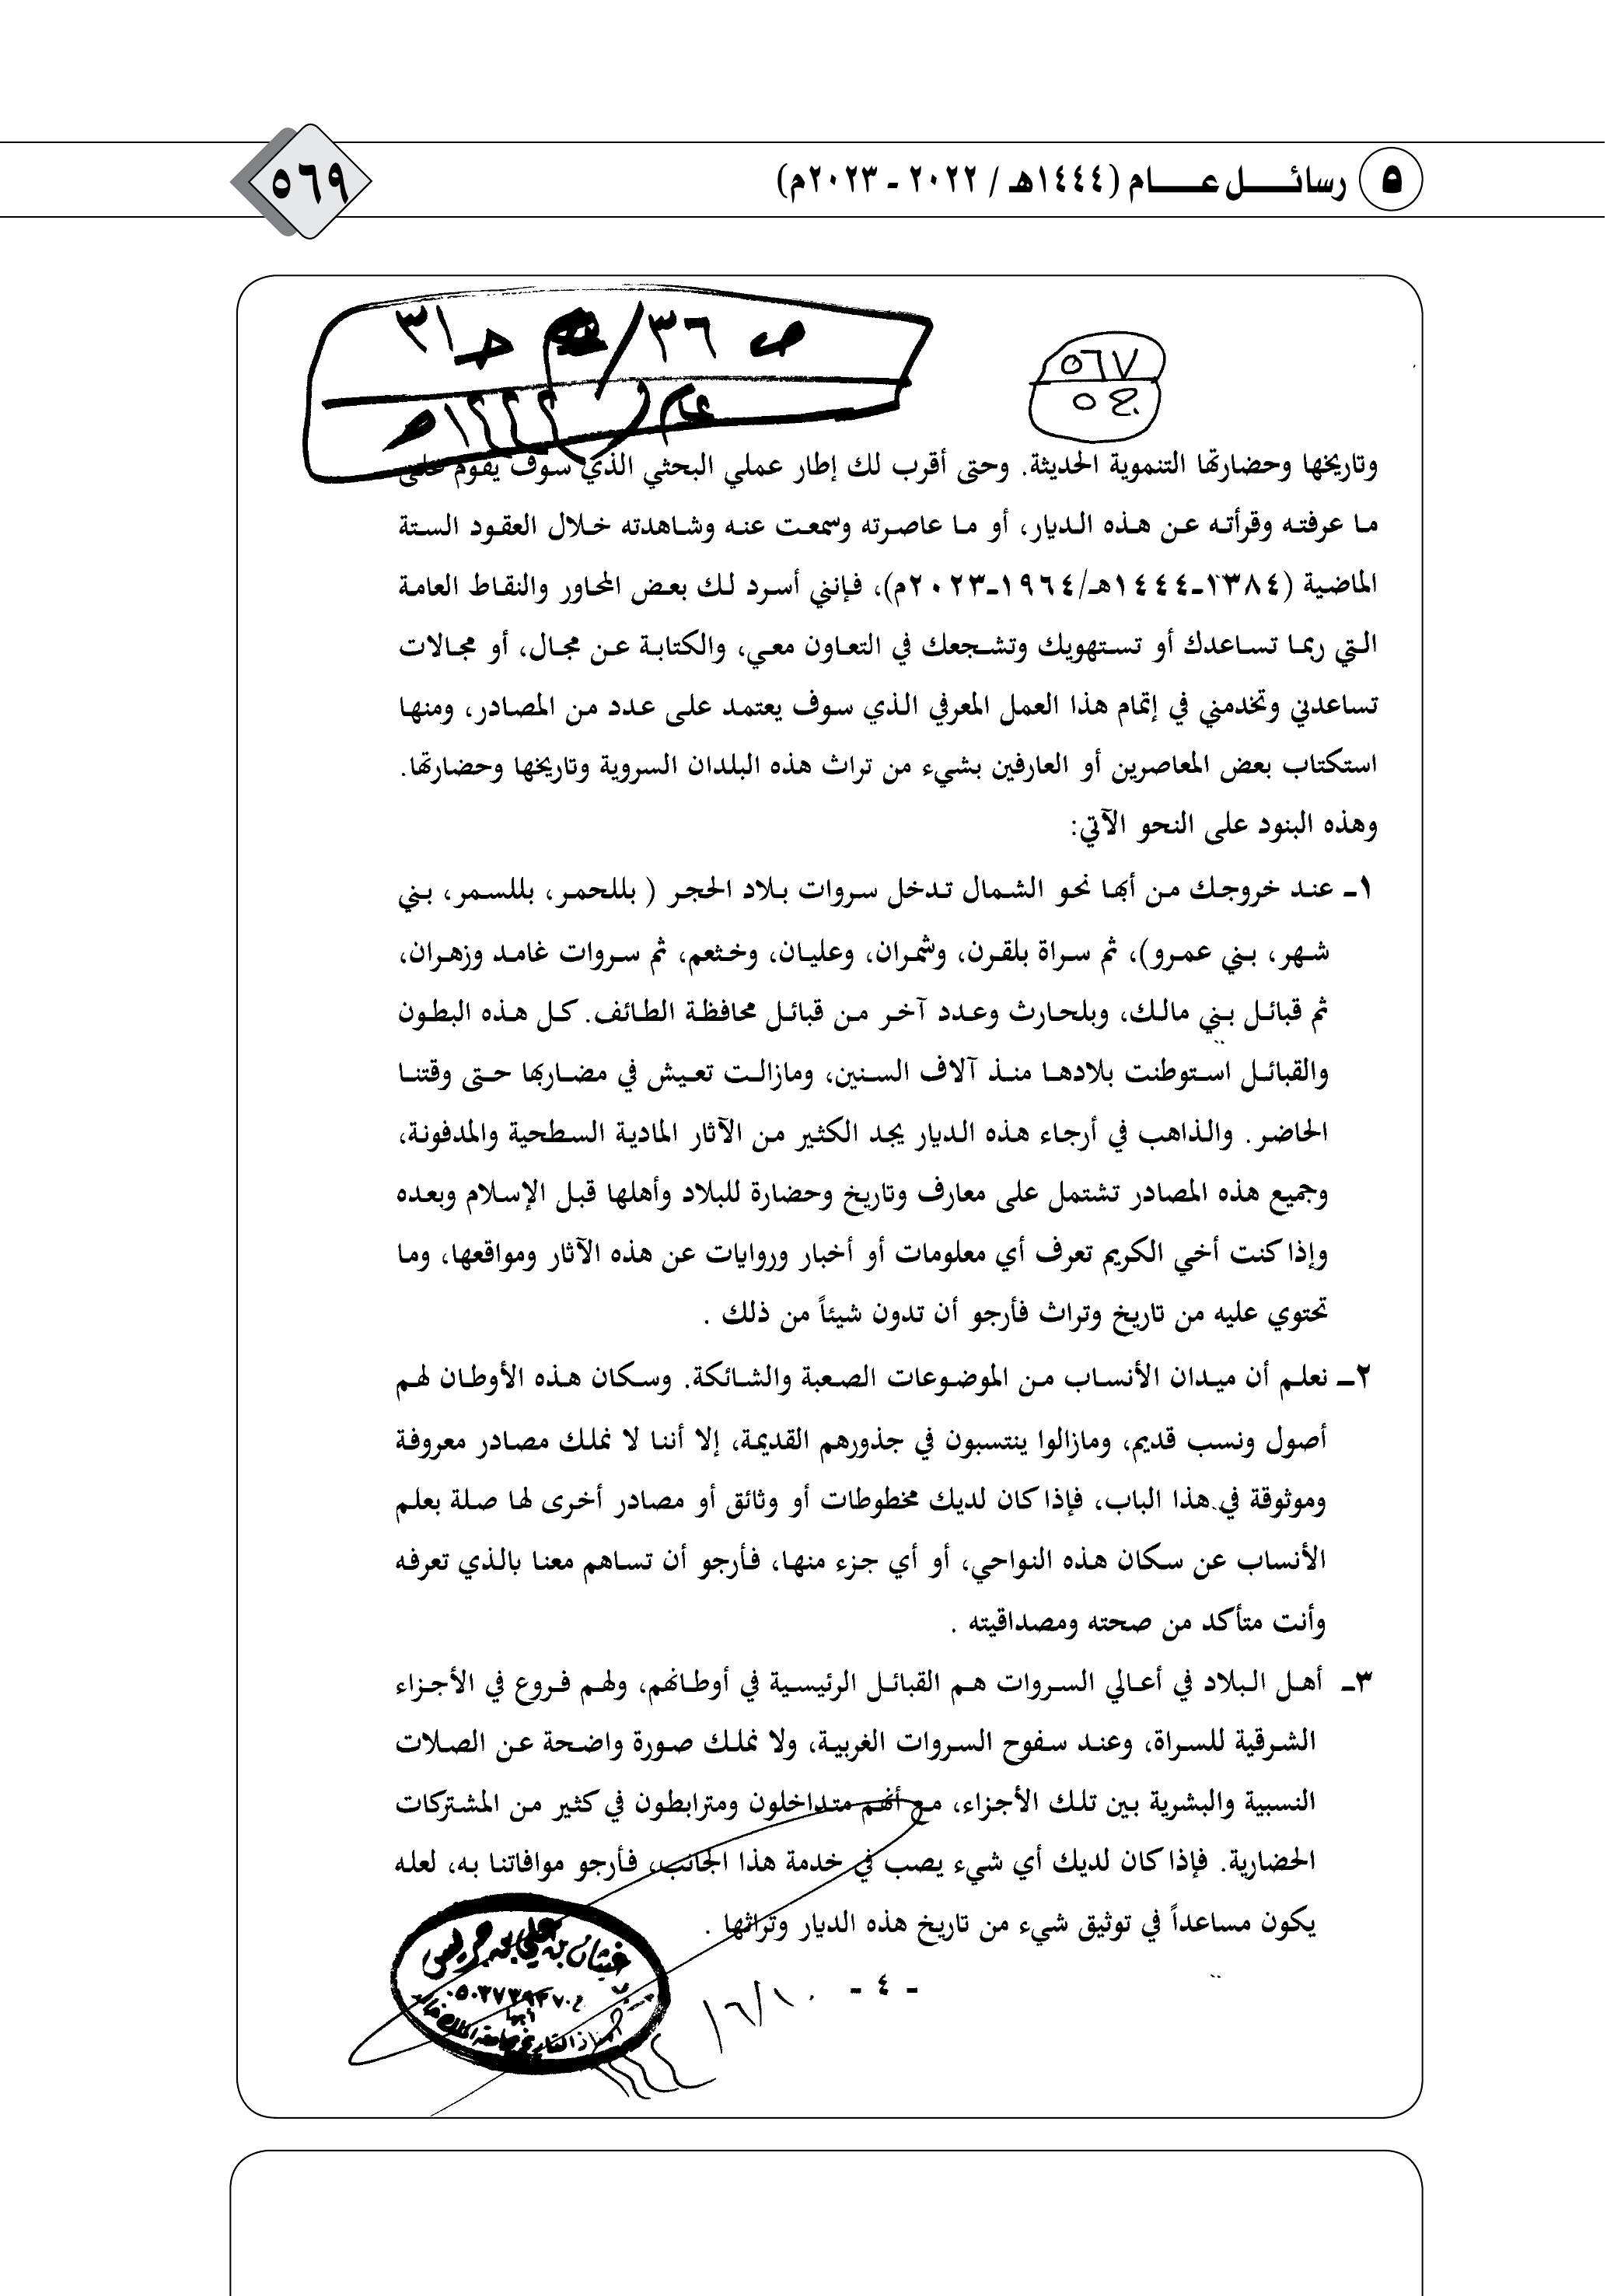 ٥ رسائل عام (١٤٤٤هـ / ٢٠٢٢ - ٢٠٢٣م)
٥٦٩
ص ٣٦ / جـ ٣١
عام ١٤٤٤هـ
٥٦٧
ج ٥
وتاريخها وحضارتها التنموية الحديثة. وحتى أقرب لك إطار عملي البحثي الذي سوف يقوم على
ما عرفته وقرأته عن هذه الديار، أو ما عاصرته وسمعت عنه وشاهدته خلال العقود الستة
الماضية (١٣٨٤-١٤٤٤هـ/١٩٦٤-٢٠٢٣م)، فإنني أسرد لك بعض المحاور والنقاط العامة
التي ربما تساعدك أو تستهويك وتشجعك في التعاون معي، والكتابة عن مجال، أو مجالات
تساعدني وتخدمني في إتمام هذا العمل المعرفي الذي سوف يعتمد على عدد من المصادر، ومنها
استكتاب بعض المعاصرين أو العارفين بشيء من تراث هذه البلدان السروية وتاريخها وحضارتها.
وهذه البنود على النحو الآتي:
١- عند خروجك من أبها نحو الشمال تدخل سروات بلاد الحجر ( بللحمر، بللسمر، بني
شهر، بني عمرو)، ثم سراة بلقرن، وشمران، وعليان، وخثعم، ثم سروات غامد وزهران،
ثم قبائل بني مالك، وبلحارث وعدد آخر من قبائل محافظة الطائف. كل هذه البطون
والقبائل استوطنت بلادها منذ آلاف السنين، ومازالت تعيش في مضاربها حتى وقتنا
الحاضر. والذاهب في أرجاء هذه الديار يجد الكثير من الآثار المادية السطحية والمدفونة،
وجميع هذه المصادر تشتمل على معارف وتاريخ وحضارة للبلاد وأهلها قبل الإسلام وبعده
وإذا كنت أخي الكريم تعرف أي معلومات أو أخبار وروايات عن هذه الآثار ومواقعها، وما
تحتوي عليه من تاريخ وتراث فأرجو أن تدون شيئاً من ذلك .
٢- نعلم أن ميدان الأنساب من الموضوعات الصعبة والشائكة. وسكان هذه الأوطان لهم
أصول ونسب قديم، ومازالوا ينتسبون في جذورهم القديمة، إلا أننا لا نملك مصادر معروفة
وموثوقة في هذا الباب، فإذا كان لديك مخطوطات أو وثائق أو مصادر أخرى لها صلة بعلم
الأنساب عن سكان هذه النواحي، أو أي جزء منها، فأرجو أن تساهم معنا بالذي تعرفه
وأنت متأكد من صحته ومصداقيته .
٣- أهل البلاد في أعالي السروات هم القبائل الرئيسية في أوطانهم، ولهم فروع في الأجزاء
الشرقية للسراة، وعند سفوح السروات الغربية، ولا نملك صورة واضحة عن الصلات
النسبية والبشرية بين تلك الأجزاء، مع أنهم متداخلون ومترابطون في كثير من المشتركات
الحضارية. فإذا كان لديك أي شيء يصب في خدمة هذا الجانب، فأرجو موافاتنا به، لعله
يكون مساعداً في توثيق شيء من تاريخ هذه الديار وتراثها .
- ٤ -
غيثان بن علي بن جريس
أبها
أستاذ التاريخ بجامعة الملك خالد